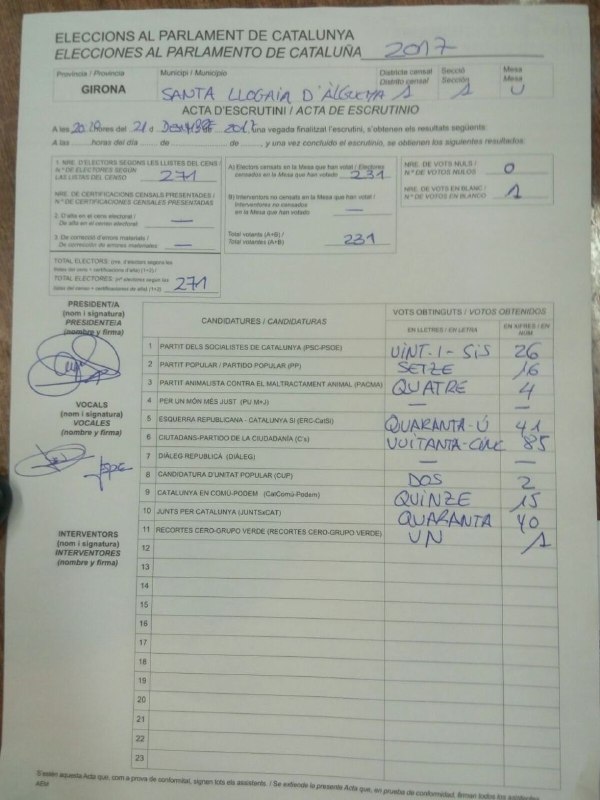 ELECCIONS AL PARLAMENT DE CATALUNYA
ELECCIONES AL PARLAMENTO DE CATALUÑA 2017
Provincia / Provincia
GIRONA
Municipi / Municipio
SANTA LLOGAIA D'ÀLGUEMA
Districte censal
Distrito censal 1
Secció
Sección 1
Mesa
Mesa U
ACTA D'ESCRUTINI / ACTA DE ESCRUTINIO
A les 20.20 hores del 21 d DESEMBRE 2017 una vegada finalitzat l'escrutini, s'obtenen els resultats següents
A las ........ horas del día ........ de ........ de ........ y una vez concluido el escrutinio, se obtienen los siguientes resultados:
1. NRE. D'ELECTORS SEGONS LES LLISTES DEL CENS /
Nº DE ELECTORES SEGÚN
LAS LISTAS DEL CENSO 271
NRE. DE CERTIFICACIONS CENSALS PRESENTADES /
Nº DE CERTIFICACIONES CENSALES PRESENTADAS
2. D'alta en el cens electoral /
De alta en el censo electoral: —
3. De correcció d'errors materials /
De corrección de errores materiales —
TOTAL ELECTORS: (nre. d'electors segons les
llistes del cens + certificacions d'alta) (1+2) /
TOTAL ELECTORES: (nº electores según las
listas del censo + certificaciones de alta) (1+2) 271
A) Electors censats en la Mesa que han votat / Electores
censados en la Mesa que han votado 231
B) Interventors no censats en la Mesa que han votat /
Interventores no censados
en la Mesa que han votado —
Total votants (A+B) /
Total votantes (A+B) 231
NRE. DE VOTS NULS /
Nº DE VOTOS NULOS 0
NRE. DE VOTS EN BLANC /
Nº DE VOTOS EN BLANCO 1
PRESIDENT/A
(nom i signatura)
PRESIDENTE/A
(nombre y firma)
VOCALS
(nom i signatura)
VOCALES
(nombre y firma)
INTERVENTORS
(nom i signatura)
INTERVENTORES
(nombre y firma)
CANDIDATURES / CANDIDATURAS
VOTS OBTINGUTS / VOTOS OBTENIDOS
EN LLETRES / EN LETRA
EN XIFRES / EN NÚM.
1 PARTIT DELS SOCIALISTES DE CATALUNYA (PSC-PSOE) VINT-I-SIS 26
2 PARTIT POPULAR / PARTIDO POPULAR (PP) SETZE 16
3 PARTIT ANIMALISTA CONTRA EL MALTRACTAMENT ANIMAL (PACMA) QUATRE 4
4 PER UN MÓN MÉS JUST (PU M+J) — —
5 ESQUERRA REPUBLICANA - CATALUNYA SÍ (ERC-CatSí) QUARANTA-Ú 41
6 CIUTADANS-PARTIDO DE LA CIUDADANÍA (C's) VUITANTA-CINC 85
7 DIÀLEG REPUBLICÀ (DIÀLEG) — —
8 CANDIDATURA D'UNITAT POPULAR (CUP) DOS 2
9 CATALUNYA EN COMÚ-PODEM (CatComú-Podem) QUINZE 15
10 JUNTS PER CATALUNYA (JUNTSxCAT) QUARANTA 40
11 RECORTES CERO-GRUPO VERDE (RECORTES CERO-GRUPO VERDE) UN 1
12
13
14
15
16
17
18
19
20
21
22
23
S'estén aquesta Acta que, com a prova de conformitat, signen tots els assistents. / Se extiende la presente Acta que, en prueba de conformidad, firman todos los asistentes
AEM